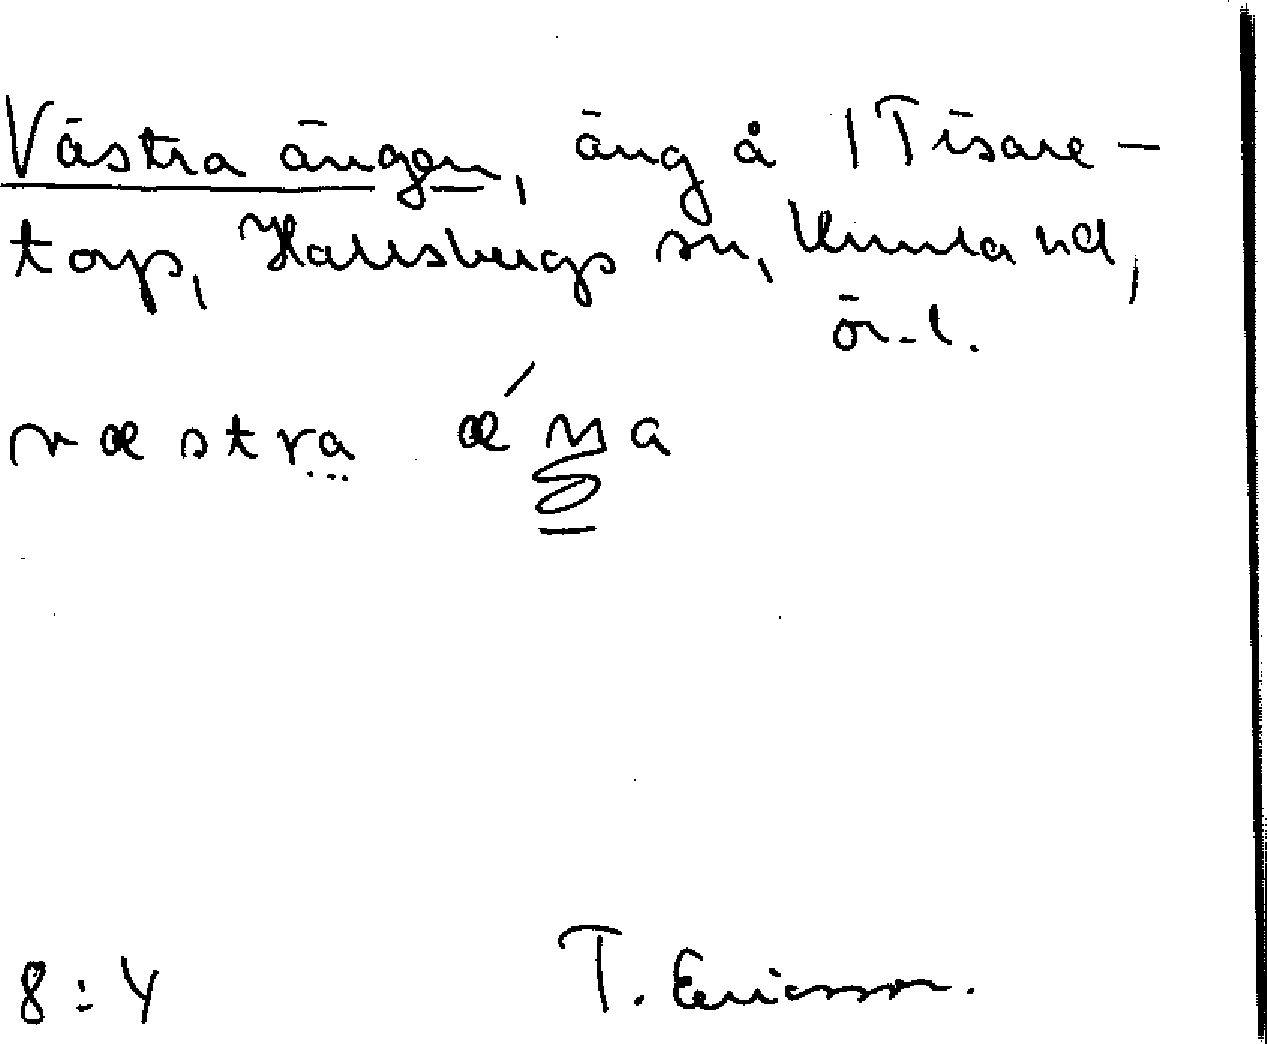 Västra ängen, äng å 1 Tisare-
torp, Hallsbergs sn, Kumla hd,
ör. l.
væstra
8:4 T. Ericsson.